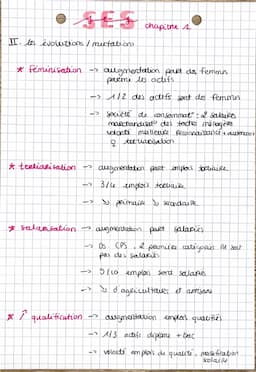 SES
chapitre 1
II - les évolutions / mutations
* féminisation → augmentation part des femmes
parmi les actifs
→ 1/2 des actifs sont des femmes
→ société de consommat° : 2 salaires
marchandisat° des taches ménagères
volonté meilleure reconnaissance + autonomie
♀ tertiarisation
* tertiarisation → augmentation part emplois tertiaire
→ 3/4 emplois tertiaire
→ ↘ primaire ↘ secondaire
* salarisation → augmentation part salariés
→ Ds CPS, 2 premières catégories ne sont
pas des salariés
→ 9/10 emplois sont salariés
→ ↘ d'agriculteurs et artisans
* ↗ qualification → augmentation emplois qualifiés
→ 1/3 actifs diplome + bac
→ volonté emplois de qualité, massification
scolaire